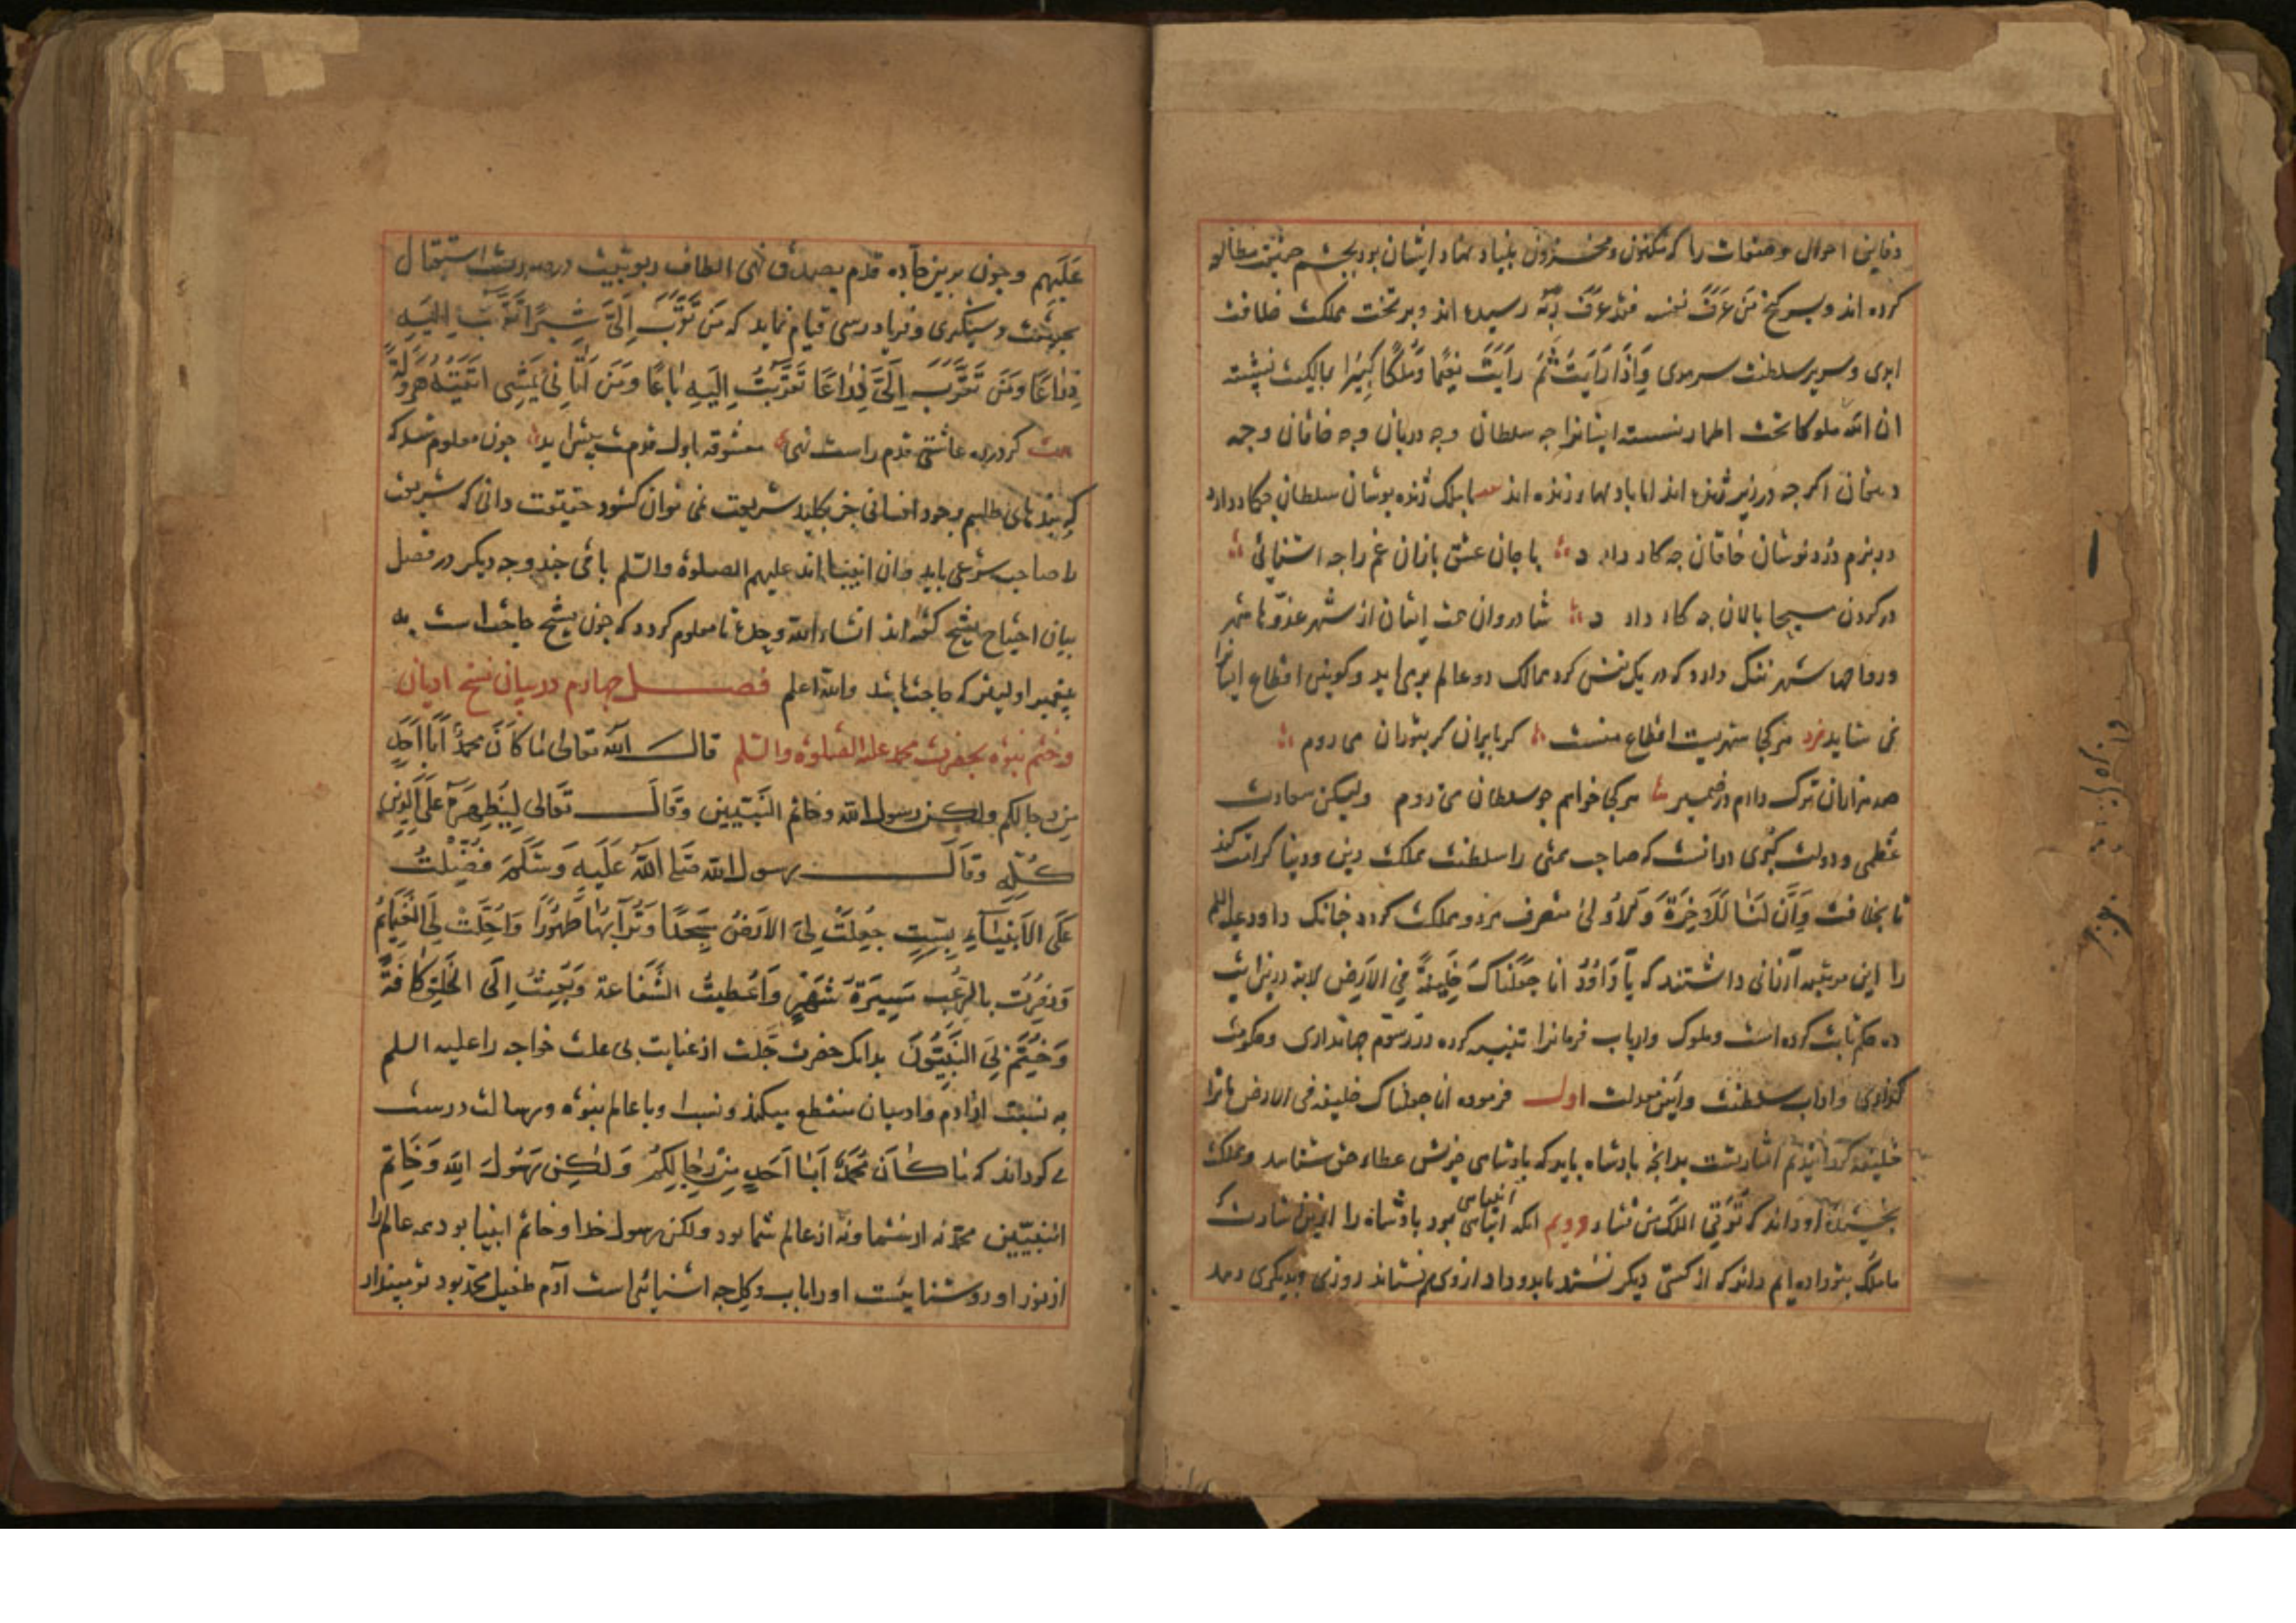 دفاین احوال و صفات را که مکنون و مخزون بنیاد نهاد ایشان بود بچشم حقیقت مطالعه
کرده اند و بسر کنج مَن عَرَفَ نفسه فقد عَرَفَ رَبَّه رسیده اند و بر تخت مملکت خلافت
ابدی و سریر سلطنت سرمدی وَاِذَا رَاَیتَ ثَمَّ رَاَیتَ نَعِیمًا وَمُلکًا کَبِیرًا بمالکیت نشسته
ان الله ملوکا تحت اطمار نشسته ایشانرا چه سلطان وچه دربان وچه خاقان وچه
دهقان اکرچه در زیر ژنده اند اما باد بهار زنده اند با ملک ژنده پوشان سلطان چکار دارد
در بزم دُرد نوشان خاقان چه کار دارد با جان عشق بازان غم را چه اشنائی
در کردن مسیحا پالان چه کار دارد شادروان همت ایشان از شهر غدوّها شهر
ورواحها شهر ننک دارد که در یک نفس کرد ممالک دو عالم بری اید و کونین اقطاع ایشانرا
نمی شاید فرد هر کجا شهریست اقطاع منست کر بایران کر بتوران می روم
صد هزاران ترک دارم در ضمیر هر کجا خواهم چو سلطان می روم ولیکن سعادت
عُظمی و دولت کُبری در انست که صاحب همتی را سلطنت مملکت دین و دنیا کرامت کند
تا بخلافت وَاِنَّ لَنَا لَلاخِرَةَ وَالاُولیٰ متصرف هر دو مملکت کردد چنانک داود علیه السلم
را این مرتبه ارزانی داشتند که یَا دَاوُدُ انا جَعَلنَاکَ خَلِیفَةً فِی الاَرضِ لابد درین ایت
ده حکم ثابت کرده است و ملوک وارباب فرمانرا تنبیه کرده در رسوم جهانداری وحکومت
کزاری واداب سلطنت وایین معدلت اول فرموده انا جعلناک خلیفه فی الارض ما ترا
خلیفه کردانیدیم اشارتست بدانچه پادشاه باید که پادشاهی خویش عطاء حق شناسد ومملکت
بخشیده او داند که تُؤتِی الملکَ مَن تشاء دویم انکه انتباهی بود پادشاه را ازین اشارت که
ما ملک بتو داده ایم داند که از کسی دیکر بستد باید و داد از وی هم بستاند روزی وبدیکری دهد
عَلَیهِم وچون برین جاده قدم بصدق نهی الطاف ربوبیت در صورت استقبال
بجهت دستکیری وفریاد رسی قیام نماید که مَن تَقَرَّبَ اِلَیَّ شِبرًا تَقَرَّبتُ اِلَیهِ
ذِرَاعًا وَمَن تَقَرَّبَ اِلَیَّ ذِرَاعًا تَقَرَّبتُ اِلَیهِ بَاعًا وَمَن اَتَانِی یَمشِی اَتَیتُهُ هَروَلَةً
بیت کر در ره عاشقی قدم راست نهی معشوقه باول قدمت پیش اید چون معلوم شد که
که بندهای طلسم وجود انسانی جز بکلید شریعت نمی توان کشود حقیقت دانی که شریعت
را صاحب شرعی باید وان انبیا اند علیهم الصلوة والسلم باقی چند وجه دیکر در فصل
بیان احتیاج بشیخ کفته اند انشاء الله وحده تا معلوم کردد که چون بشیخ حاجت است به
پیغمبر اولیتر که حاجت باشد والله اعلم فصـــل چهارم در بیان نسخ ادیان
وختم نبوة بحضرت محمد علیه الصلوة والسلم قالـــ الله تعالی مَا کَانَ مُحَمَّدٌ اَبَا اَحَدٍ
مِن رجالکم ولکن رسول الله وخاتم النَبیّین وَقَالَــ تَعَالی لِیُظهِرَهُ عَلَی الدِّینِ
کُلِّهِ وَقَالَــــ رسول الله صَلی اللهُ عَلَیهِ وَسَلَّمَ فُضِّلتُ
عَلَی الاَنبِیَاءِ بِسِتٍّ جُعِلَت لِیَ الاَرضُ مَسجِدًا وَتُرَابُهَا طَهُورًا وَاُحِلَّت لِیَ الغَنَایِمُ
وَنُصِرتُ بِالرُّعبِ مَسِیرَةَ شَهرٍ وَاُعطِیتُ الشَّفَاعة وَبُعِثتُ اِلَی الخَلقِ کَافَّةً
وَخُتِمَ بِیَ النَّبِیُّونَ بدانک حضرت جَلت از عنایت بی علت خواجه را علیه السلم
به نسبت از ادم وادمیان منقطع میکند ونسبت او با عالم نبوة ورسالت درست
می کرداند که مَا کَانَ مُحَمَّدٌ اَبَا اَحَدٍ مِن رِجَالِکُم وَلٰکِن رَسُولَ اللهِ وَخَاتَم
النبیّین محمّد نه از شما ونه از عالم شما بود ولکن رسول خدا وخاتم انبیا بود همه عالم را
از نور او روشنائیست او را با اب وکل چه اشنائی است آدم طفیل محمّد بود تو میپنداری